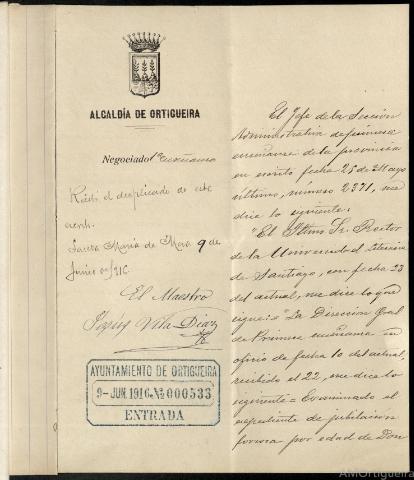 ALCALDÍA DE ORTIGUEIRA
Negociado 1ª enseñanza
Recibí el duplicado de este
Santa María de Mera 9 de
Junio de 916
El Maestro
Vila Díaz
AYUNTAMIENTO DE ORTIGUEIRA
9-JUN.1916 № 000533
ENTRADA
El Jefe de la Sección
Administrativa de primera
enseñanza de la provincia
en escrito fecha 25 de Mayo
último, número 2371, me
dice lo siguiente:
"El Iltmo Sr. Rector
de la Universidad Literaria
de Santiago, con fecha 23
del actual, me dice lo que
sigue: = "La Dirección Gral
de Primera enseñanza en
oficio de fecha 10 del actual,
recibido el 22, me dice lo
siguiente = Examinado el
expediente de jubilación
forzosa por edad de Don
AMOrtigueira